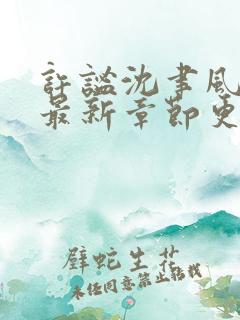 许谧沈聿风
最新章节更
壁蛇生花
未经同意禁止转载